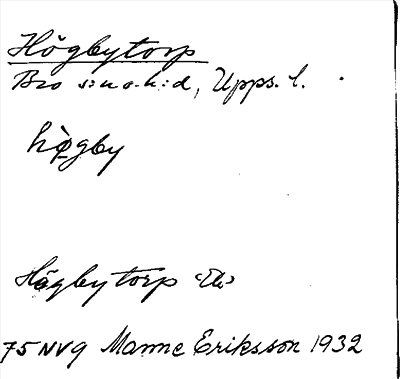 Högbytorp
Bro s:n o. h:d, Upps. l.
hö̀gby
Högbytorp
75 NV g Manne Eriksson 1932